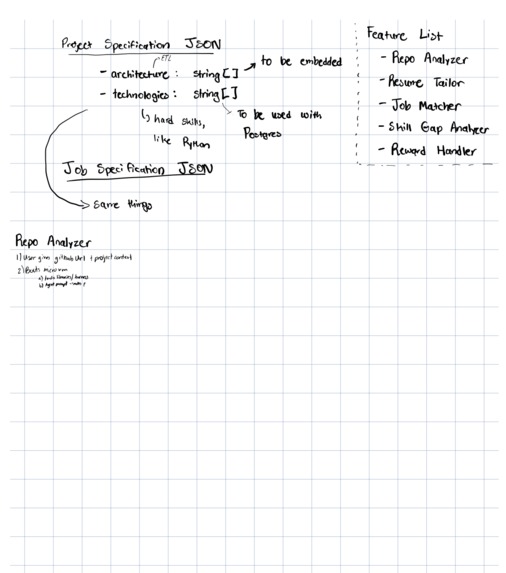 Project Specification JSON
ETL
- architecture : string[] → to be embedded
- technologies : string[]
↳ hard skills, like Python
To be used with Postgres
Job Specification JSON
→ Same things
Feature List
- Repo Analyzer
- Resume Tailor
- Job Matcher
- Skill Gap Analyzer
- Reward Handler
Repo Analyzer
1) User gives github url + project context
2)
a)
b) Agent prompt